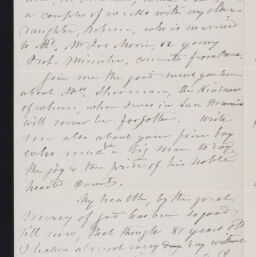 a couple of weeks with my dear
daughter, Rebecca, who is married
to Mr. a young
Minister,
join me the good news you have
about Mrs Sherman, the kindness
of whom, when I was in San Francisco
will never be forgotten. Write
me also about your fine boy
who must be a big man to day
the joy & the pride of his noble
hearted Parents.
My health, by the great
mercy of God has been so good
till now, that though 81 years old
I lecture almost every day without